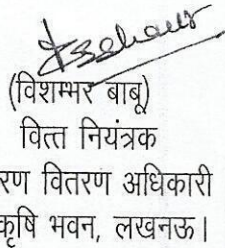 (विशम्भर बाबू)
वित्त नियंत्रक
रण वितरण अधिकारी
कृषि भवन, लखनऊ।